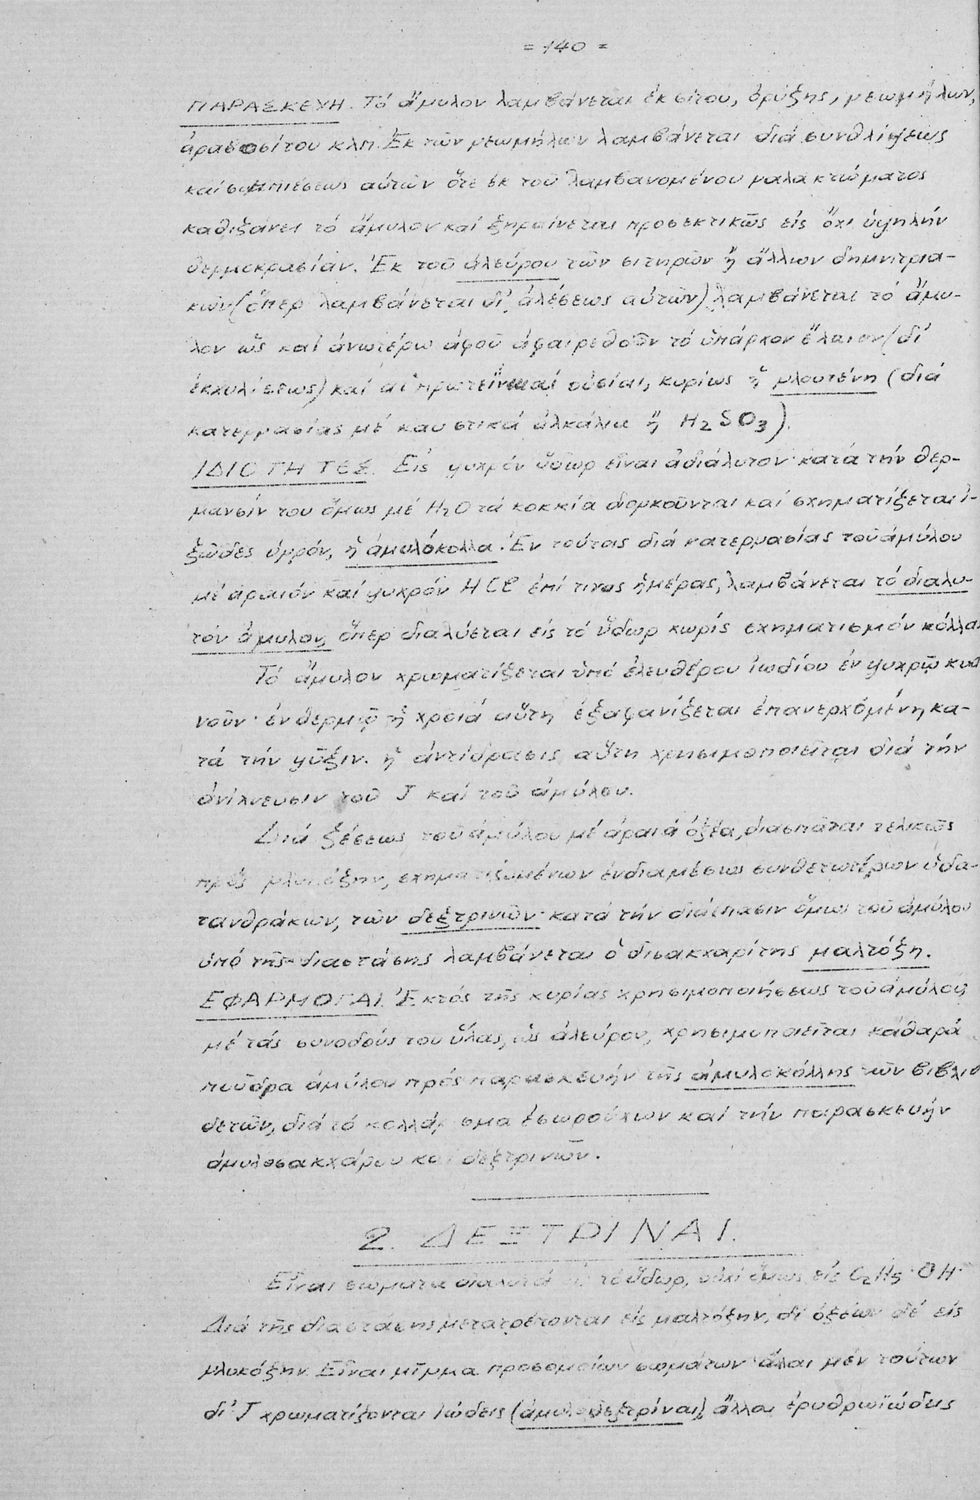 = 140 =
ΠΑΡΑΣΚΕΥΗ. Τό ἄμυλον λαμβάνεται ἐκ σίτου, ὀρύξης, γεωμήλων,
ἀραβοσίτου κλπ. Ἐκ τῶν γεωμήλων λαμβάνεται διά συνθλίψεως
καί συμπιέσεως αὐτῶν ὅτε ἐκ τοῦ λαμβανομένου γαλακτώματος
καθιζάνει τό ἄμυλον καί ξηραίνεται προσεκτικῶς εἰς ὄχι ὑψηλήν
θερμοκρασίαν. Ἐκ τοῦ ἀλεύρου τῶν σιτηρῶν ἤ ἄλλων δημητρια-
κῶν (ὅπερ λαμβάνεται δι' ἀλέσεως αὐτῶν) λαμβάνεται τό ἄμυ-
λον ὡς καί ἀνωτέρω ἀφοῦ ἀφαιρεθοῦν τό ὑπάρχον ἔλαιον (δι'
ἐκχυλίσεως) καί αἱ πρωτεϊνικαί οὐσίαι, κυρίως ἡ γλουτένη (διά
κατεργασίας μέ καυστικά ἀλκάλια ἤ H2SO3).
ΙΔΙΟΤΗΤΕΣ. Εἰς ψυχρόν ὕδωρ εἶναι ἀδιάλυτον· κατά τήν θέρ-
μανσίν του ὅμως μέ H2O τά κοκκία διογκοῦνται καί σχηματίζεται ἰ-
ξῶδες ὑγρόν, ἡ ἀμυλόκολλα. Ἐν τούτοις διά κατεργασίας τοῦ ἀμύλου
μέ ἀραιόν καί ψυχρόν HCl ἐπί τινας ἡμέρας, λαμβάνεται τό διαλυ-
τόν ἄμυλον, ὅπερ διαλύεται εἰς τό ὕδωρ χωρίς σχηματισμόν κόλλα
Τό ἄμυλον χρωματίζεται ὑπό ἐλευθέρου ἰωδίου ἐν ψυχρῷ κυα
νοῦν· ἐν θερμῷ ἡ χροιά αὕτη ἐξαφανίζεται ἐπανερχομένη κα-
τά τήν ψῦξιν. ἡ ἀντίδρασις αὕτη χρησιμοποιεῖται διά τήν
ἀνίχνευσιν τοῦ J καί τοῦ ἀμύλου.
Διά ζέσεως τοῦ ἀμύλου μέ ἀραιά ὀξέα, διασπᾶται τελικῶς
πρός γλυκόζην, σχηματιζομένων ἐνδιαμέσως συνθετωτέρων ὑδα-
τανθράκων, τῶν δεξτρινῶν· κατά τήν διάσπασιν ὅμως τοῦ ἀμύλου
ὑπό τῆς διαστάσης λαμβάνεται ὁ δισακχαρίτης μαλτόζη.
ΕΦΑΡΜΟΓΑΙ. Ἐκτός τῆς κυρίας χρησιμοποιήσεως τοῦ ἀμύλου,
μέ τάς συνοδούς του ὕλας, ὡς ἀλεύρου, χρησιμοποιεῖται καθαρά
πούδρα ἀμύλου πρός παρασκευήν τῆς ἀμυλοκόλλης τῶν βιβλιο
δετῶν, διά τό κολλάρισμα ἐσωρούχων καί τήν παρασκευήν
ἀμυλοσακχάρου καί δεξτρινῶν.
2. ΔΕΞΤΡΙΝΑΙ.
Εἶναι σώματα διαλυτά εἰς τό ὕδωρ, οὐχί ὅμως εἰς C2H5·OH·
Διά τῆς διαστάσης μετατρέπονται εἰς μαλτόζην, δι' ὀξέων δέ εἰς
γλυκόζην. Εἶναι μῖγμα προσομοίων σωμάτων· ἄλλαι μέν τούτων
δι' J χρωματίζονται ἰώδεις (ἀμυλοδεξτρίναι), ἄλλαι ἐρυθροϊώδεις